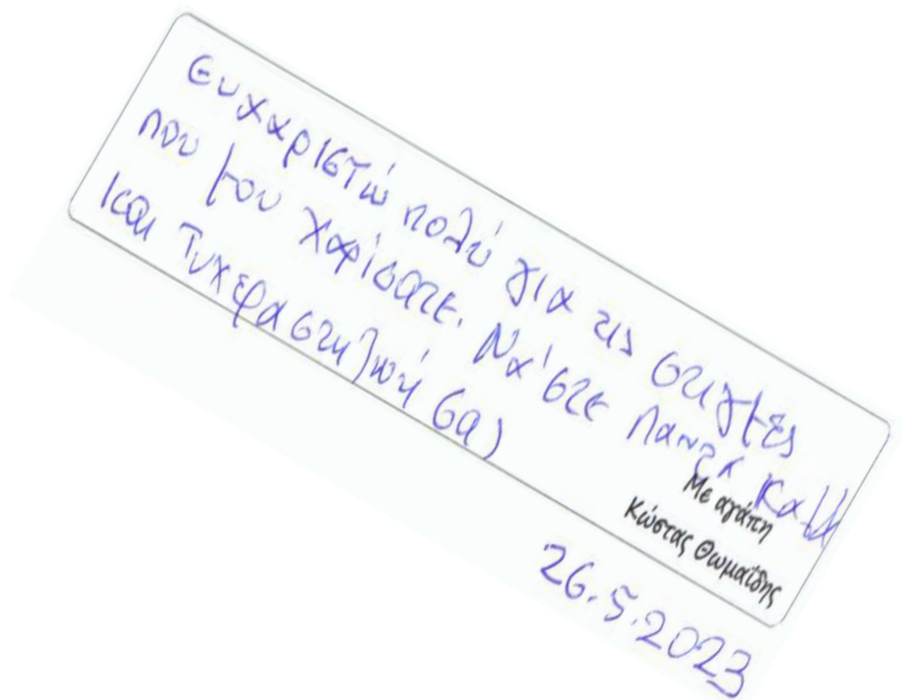 Ευχαριστώ πολύ για τις στιγμές
που μου χαρίσατε. Να 'στε πάντα καλά
και τυχεροί στη ζωή σας
Με αγάπη
Κώστας Θωμαΐδης
26.5.2023